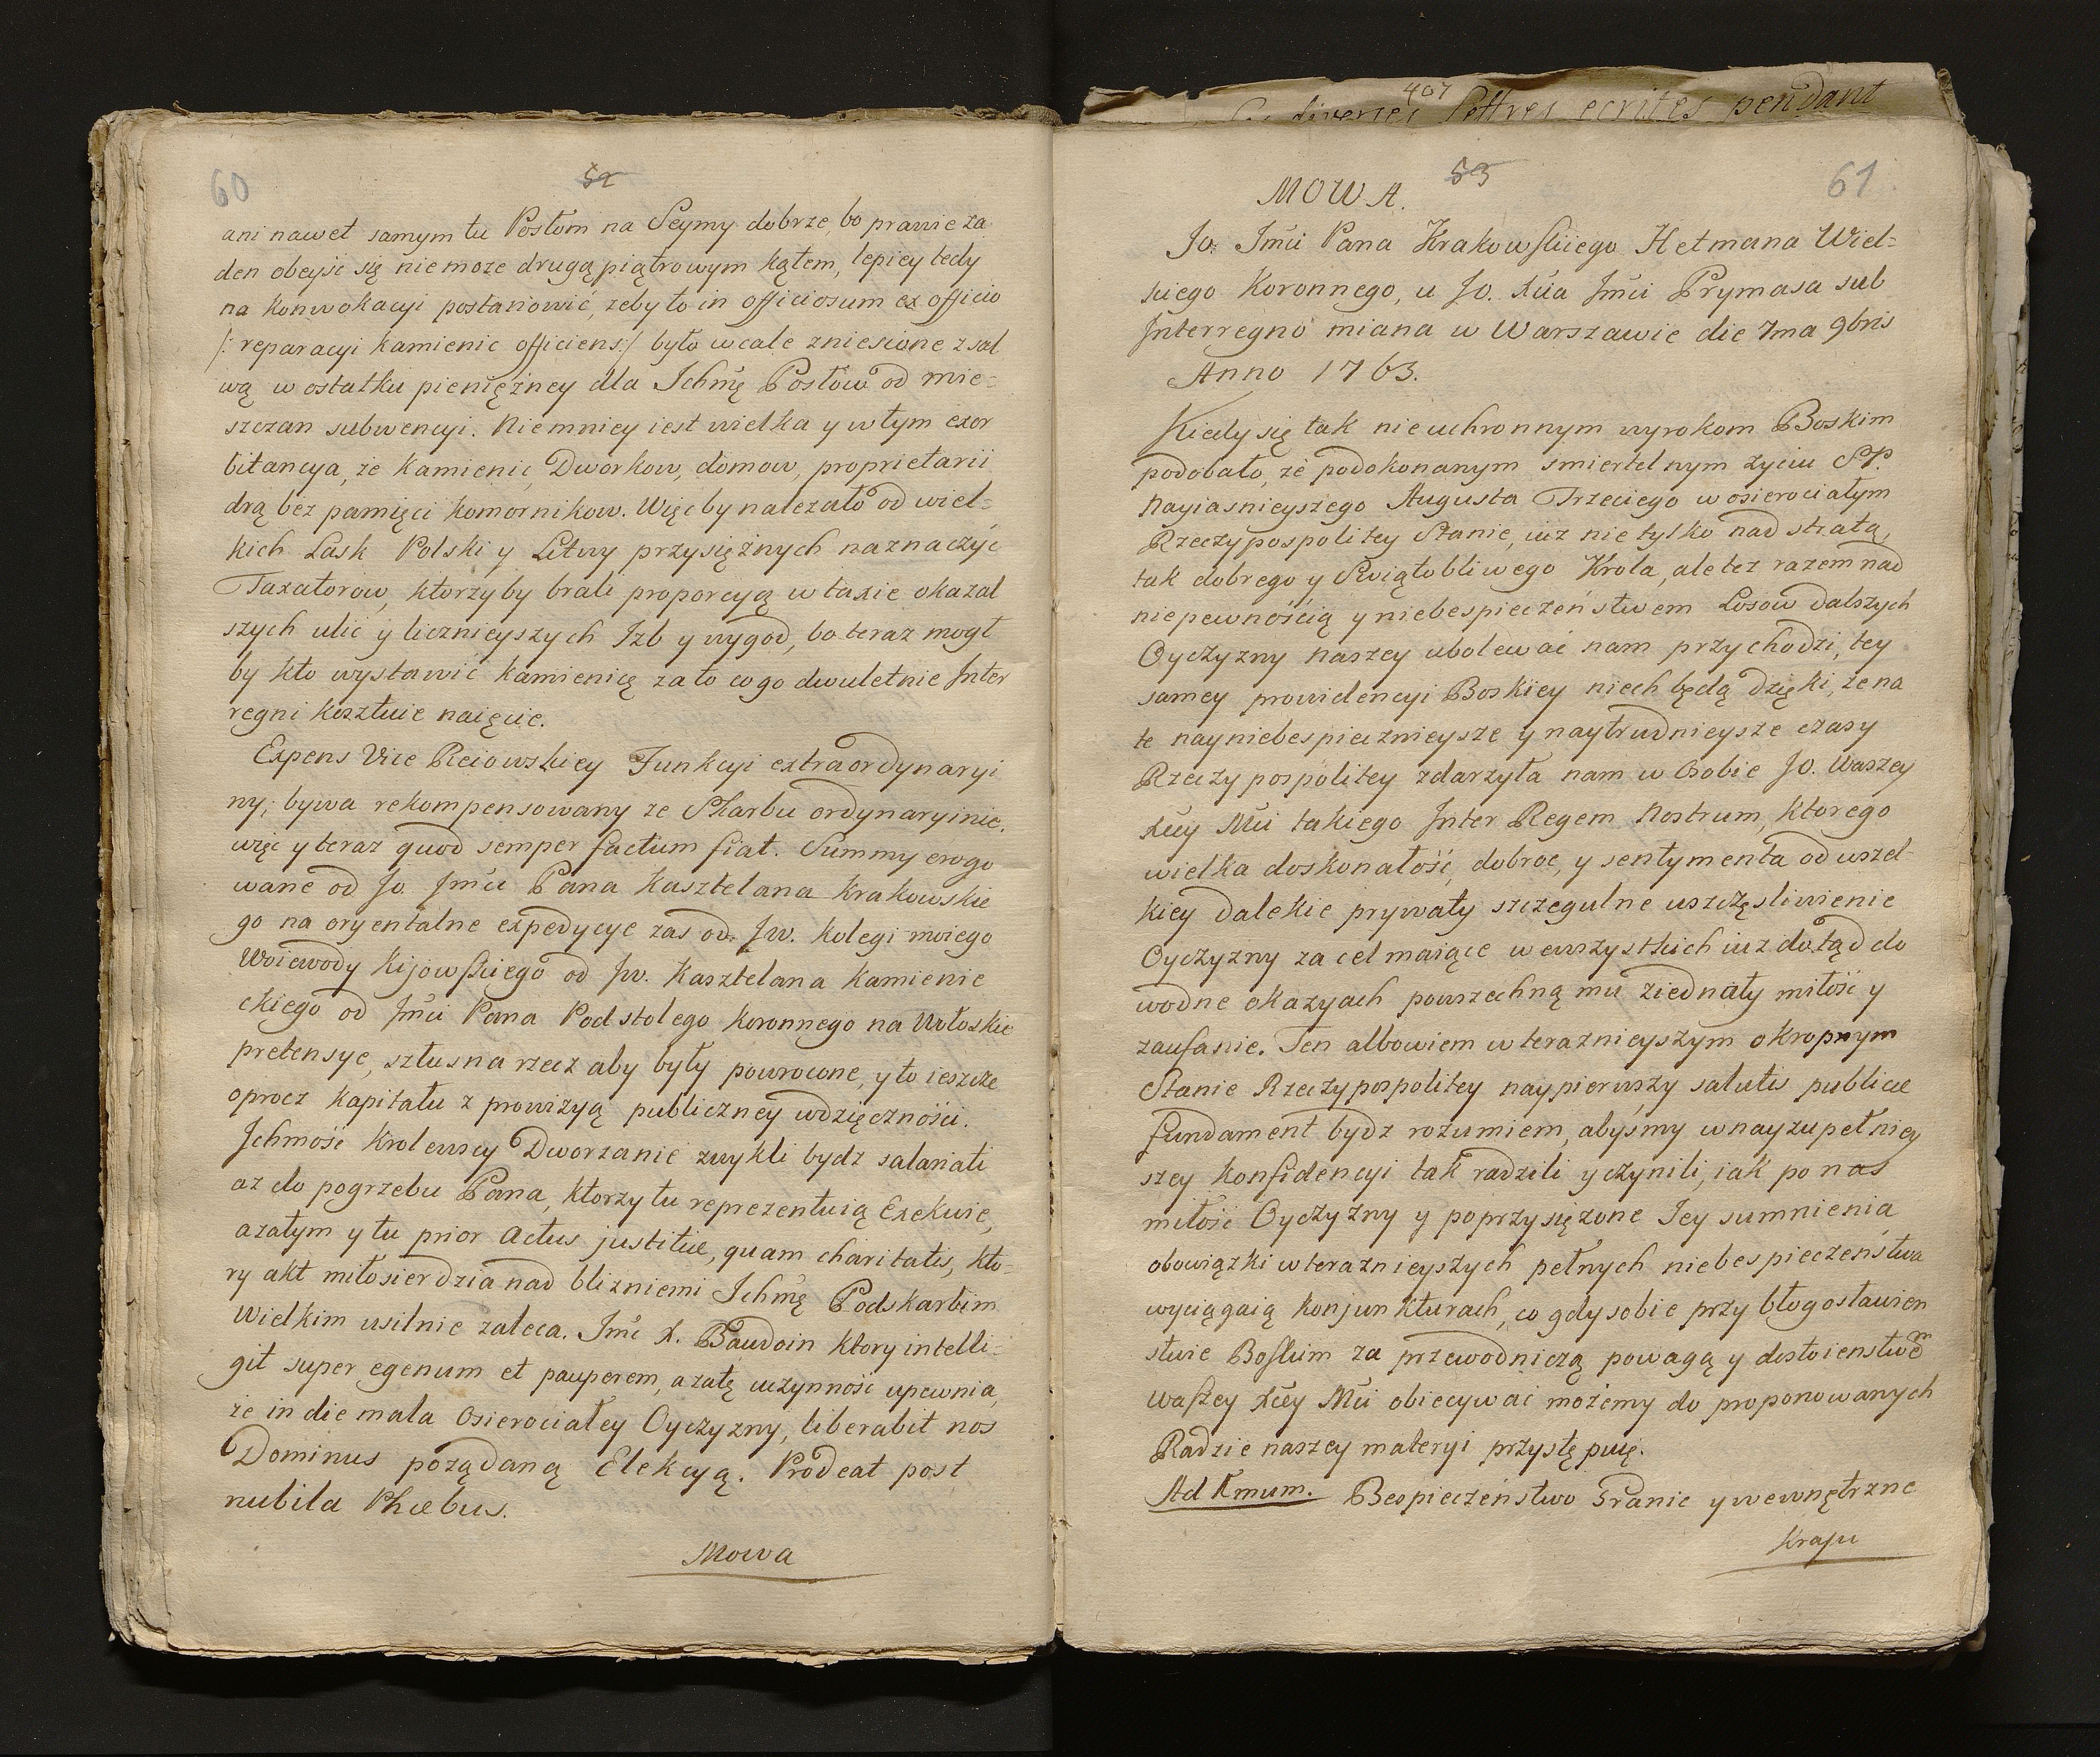 60
52
ani nawet samym tu Posłom na Seymy dobrze, bo prawie ża
den obeyść się niemoze drugą piątrowym kątem, lepiey tedy
na konwokacyi postanowić, zeby to in officiosum ex officio
/: reparacyi kamienic officiens:/ było wcale zniesione z sal
wą w ostatku pieniężney dla Ichmę Posłow od mie=
szczan subwencyi. Niemniey iest wielka y w tym exor
bitancya, że Kamienic, Dworkow, domow, proprietarii
drą bez pamięci komornikow. Więc by nalezało od wiel=
kich Lask Polski y Litwy przysiężnych naznaczyć
Taxatorow, ktorzyby brali proporcyą w taxie okazal
szych ulic y licznieyszych Izb y wygod, bo teraz mogł
by kto wystawić kamienicę za to co go dwuletnie Inter
regni kosztuie naięcie.
Expens Vice Reiowskiey Funkcyi extraordynaryi
ny; bywa rekompensowany ze Skarbu ordynaryinie,
więc y teraz quod semper factum fiat. Summy erogo
wane od Jo. Jmći Pana Kasztelana Krakowskie
go na oryentalne expedycye zas od Jw. Kolegi moiego
Woiewody Kijowskiego od Jw. Kasztelana Kamienie
ckiego od Jmći Pana Podstolego Koronnego na Wołoskie
pretensye, szłusna rzecz aby były powrocone, y to ieszcze
oprocz kapitału z prowizyą publiczney wdzięczności.
Ichmość Krolewscy Dworzanie zwykli bydz salariati
az do pogrzebu Pana, ktorzy tu reprezentuią Exekwie,
azatym y tu prior Actus justitiæ, quam charitatis, kto=
ry akt miłosierdzia nad blizniemi Ichmę Podskarbim
Wielkim usilnie zaleca. Jmć X. Baudoin ktory intelli=
git super egenum et pauperem, a zatę uczynność upewnia,
że in die mala Osierociałey Oyczyzny, liberabit nos
Dominus pożądaną Elekcyą. Prodeat post
nubila Phœbus.
Mowa
407
diverses Lettres ecrites pendant
53
61
MOWA.
Jo. Jmći Pana Krakowskiego Hetmana Wiel=
kiego Koronnego, u Jo. Xcia Jmći Prymasa sub
Interregno miana w Warszawie die 7ma 9bris
Anno 1763.
Kiedy się tak nieuchronnym wyrokom Boskim
podobało, że podokonanym smiertelnym życiu SP.
Nayiasnieyszego Augusta Trzeciego w osierociałym
Rzeczypospolitey Stanie, iuz nie tylko nad stratą,
tak dobrego y Swiątobliwego Krola, ale tez razem nad
niepewnością y niebespieczeństwem Losow dalszych
Oyczyzny naszey ubolewać nam przychodzi, tey
samey prowidencyi Boskiey niech będą dzięki, że na
te nayniebespiecznieysze y naytrudnieysze czasy
Rzeczypospolitey zdarzyła nam w Osobie Jo. Waszey
Xcey Mći takiego Inter Regem Nostrum, ktorego
wielka doskonałość, dobroc, y sentymenta od wszel-
kiey dalekie prywaty szczegulne uszczęsliwienie
Oyczyzny za cel maiące w ewszystkich iuz dotąd do
wodne okazyach powszechną mu ziednały miłość y
zaufanie. Ten albowiem w teraznieyszym okropnym
Stanie Rzeczypospolitey naypierwszy salutis publicæ
fundament bydz rozumiem, abyśmy w nayzupełniey
szey konfidencyi tak radzili y czynili, iak po nas
miłość Oyczyzny y poprzysięzone Jey sumnienia
obowiązki w teraznieyszych pełnych niebespieczeństwa
wyciągaią konjunkturach, co gdy sobie przy błogosławien
stwie Boskim za przewodniczą powagą y dostoienstwem
waszey Xcey Mći obiecywać możemy do proponowanych
Radzie naszey materyi przystępuię.
Ad 1mum. Bespieczeństwo Granic y wewnętrzne
Kraju